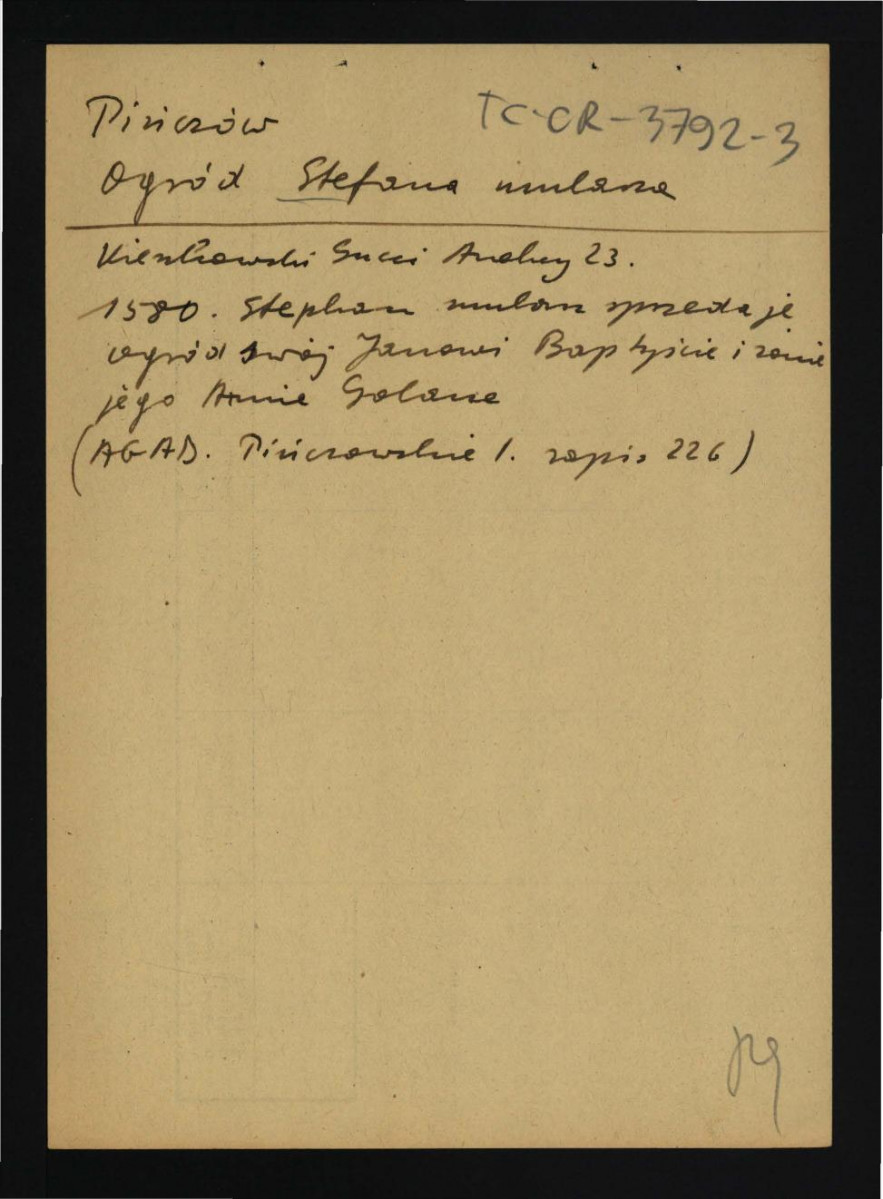 Pińczów
TC-CR-3792-3
Ogród Stefana mularza
Kieszkowski Gucci Aneksy 23.
1580. Stephan mularz sprzedaje
ogród swój Janowi Baptyście i żonie
jego Annie Golance
(AGAD. Pińczowskie 1. zapis 226)